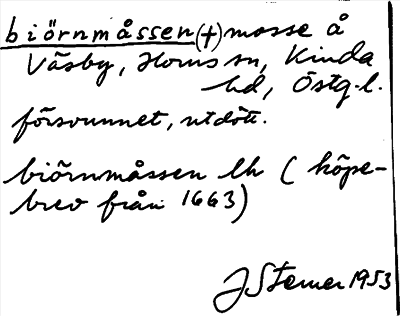 biörnmåssen (†) mosse å
Väsby, Horns sn, Kinda
hd, Östg.l.
försvunnet, utdött.
biörnmåssen lh (köpe-
brev från 1663)
J Sterner 1953